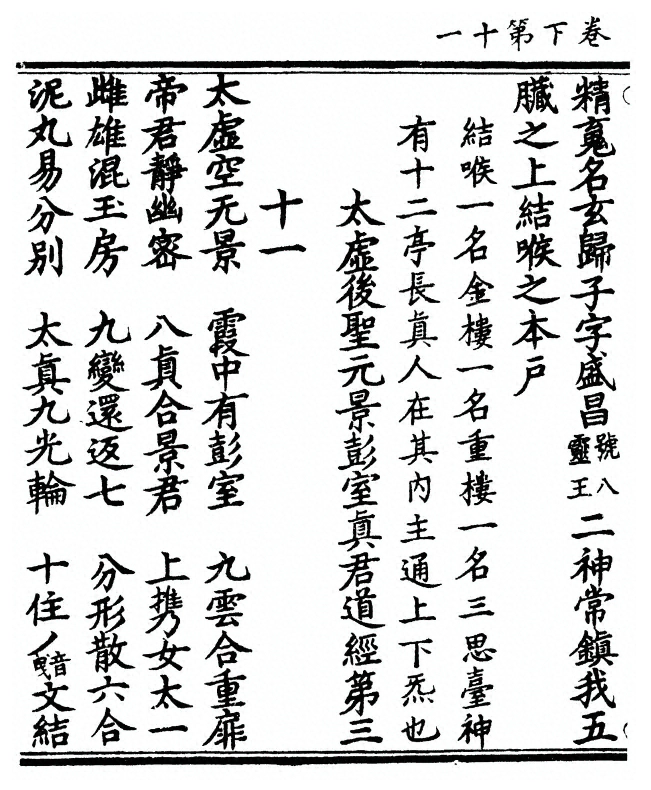 卷下第十一
精䰟名玄歸子字盛昌號八靈王二神常鎮我五
臟之上結喉之本戶
結喉一名金樓一名重樓一名三思臺神
有十二亭長眞人在其內主通上下炁也
太虛後聖元景彭室眞君道經第三
十一
太虛空无景 霞中有彭室 九雲合重扉
帝君靜幽密 八眞合景君 上攜女太一
雌雄混玉房 九變還返七 分形散六合
泥丸易分別 太眞九光輪 十住丿音曳文結